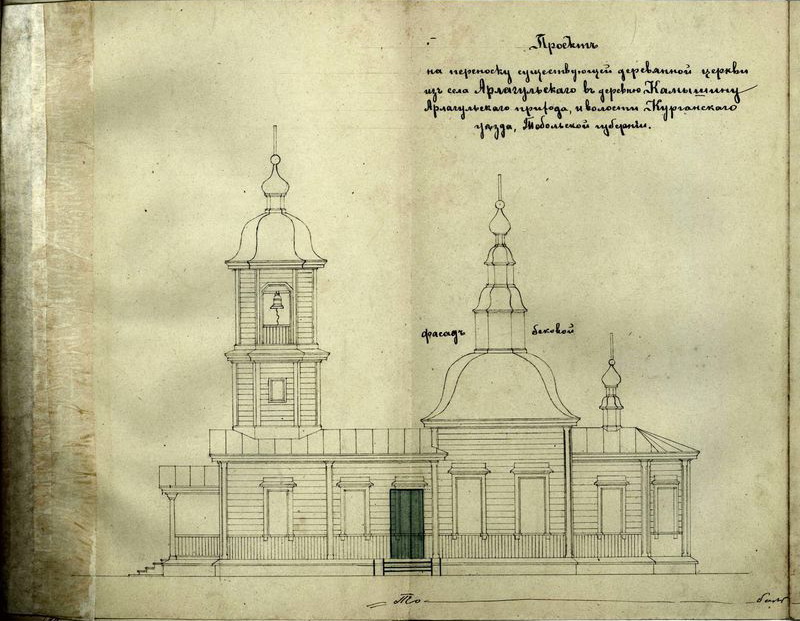 Проектъ
на переноску существующей деревянной церкви
изъ села Арлагульскаго въ деревню Камышину
Арлагульскаго прихода, и волости Курганскаго
уѣзда, Тобольской губерніи.
фасадъ боковой
То